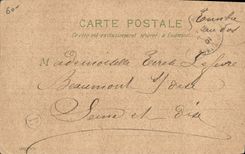 60
CARTE POSTALE
Ce côté est exclusivement réservé à l'adresse
Timbre
au dos
Mademoiselle Lefevre
Beaumont s/ Oise
Seine et Oise